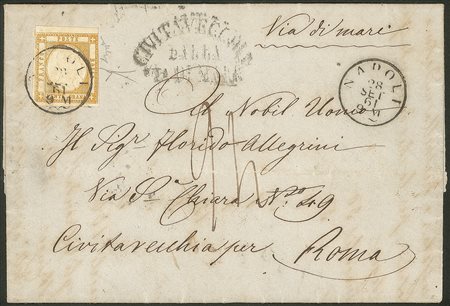 Via di mare
CIVITAVECCHIA
DALLA
VIA DI MARE
POSTE
NAPOLI
28
SET
61
9 M
Al Nobil Uomo
Il Sigr Florido Allegrini
Via Sa Chiara No 49
Civitavecchia per Roma